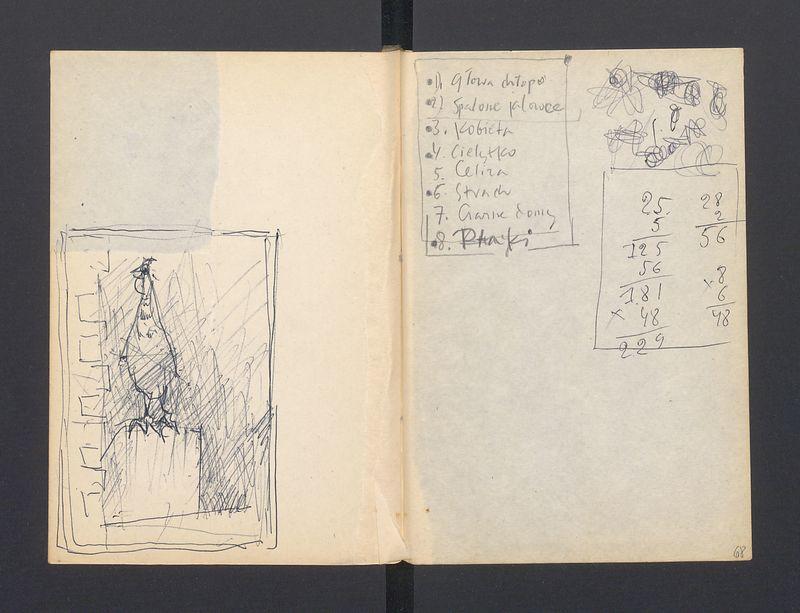 1) Głowa chłopa
2) Spalone jałowce
3. Kobieta
4. Cielątko
5. Celina
6. Strach
7. Czarne domy
8. Ptaki
25
5
125
56
181
× 48
229
28
2
56
× 8
6
48
68